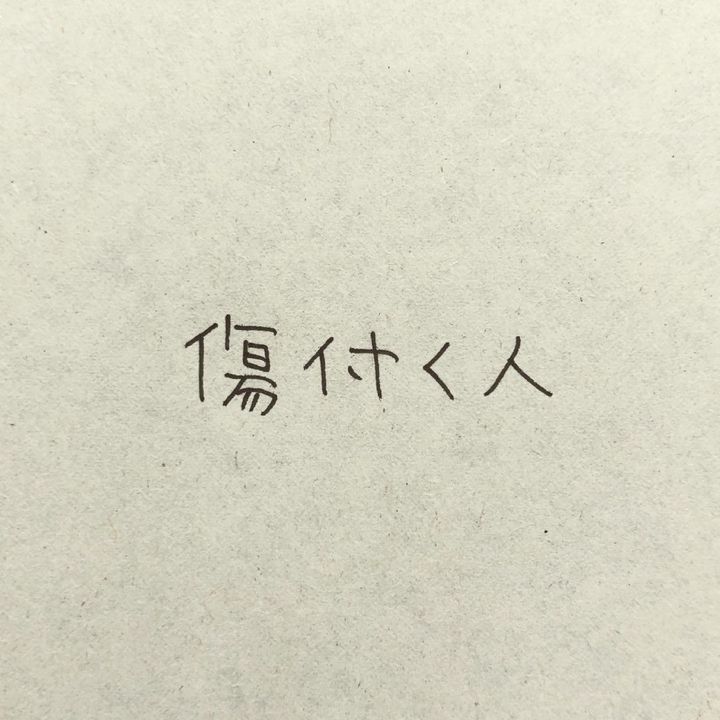 傷付く人